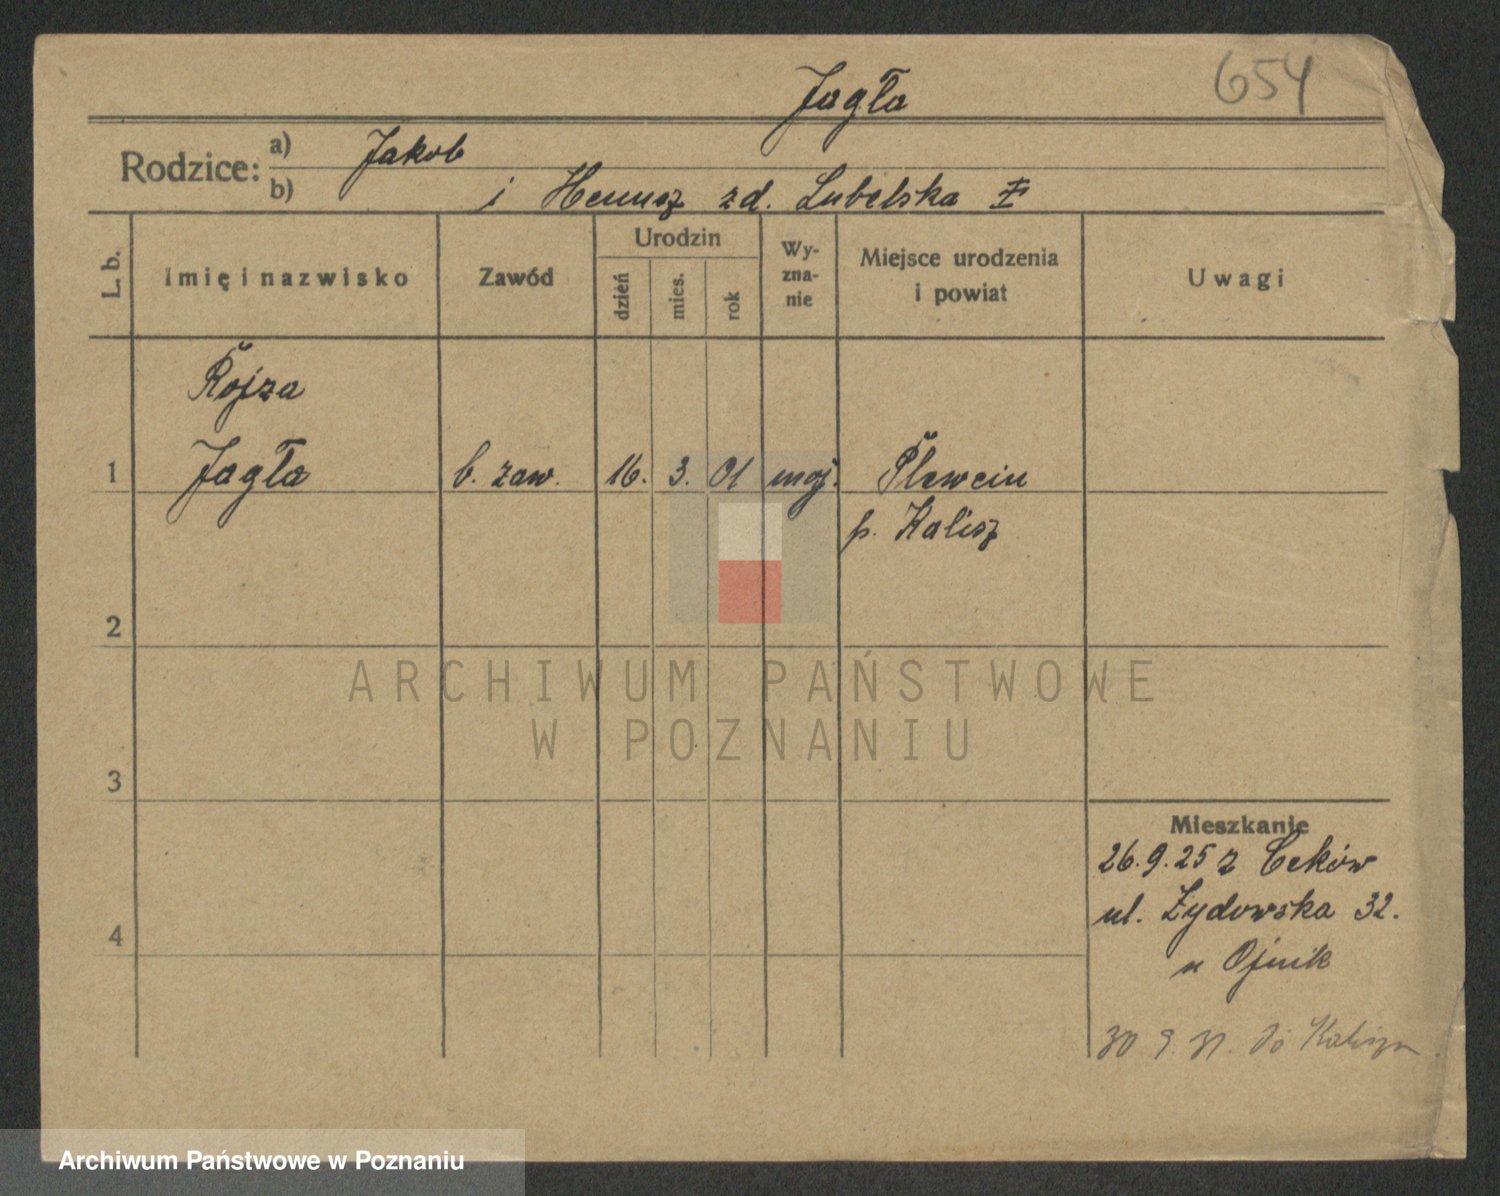 654
Jagła
Rodzice: a) Jakob
b) i Henusz zd. Lubelska
L. b.
Imię i nazwisko
Zawód
Urodzin
dzień
mies.
rok
Wy-
zna-
nie
Miejsce urodzenia
i powiat
Uwagi
Rojza
1 Jagła b. zaw. 16. 3. 01 moj.
p. Kalisz
2
3
4
Mieszkanie
26.9.25 z Ceków
ul. Żydowska 32.
u Ojnik
30 9 31. do Kalisza
ARCHIWUM PAŃSTWOWE
W POZNANIU
Archiwum Państwowe w Poznaniu